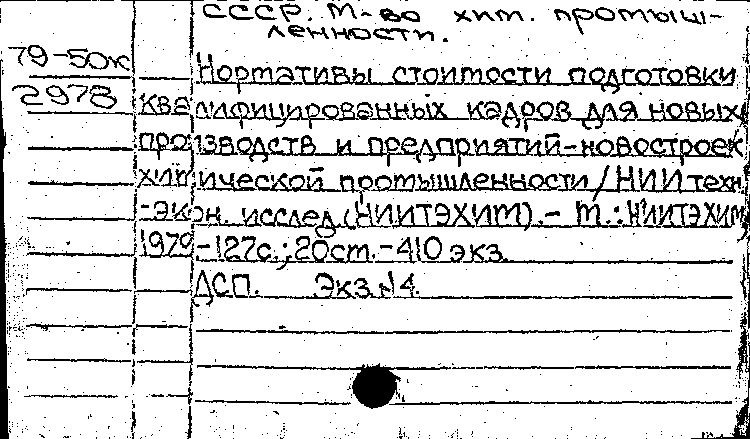 СССР. М-во хим. промыш-
ленности.
79-50к
2978
Нормативы стоимости подготовки
квалифицированных кадров для новых
производств и предприятий-новостроек
химической промышленности/НИИ техн.
-экон. исслед. (НИИТЭХИМ).- М.: НИИТЭХИМ,
1979.-127с.; 20см.-410 экз.
ДСП. Экз.№4.